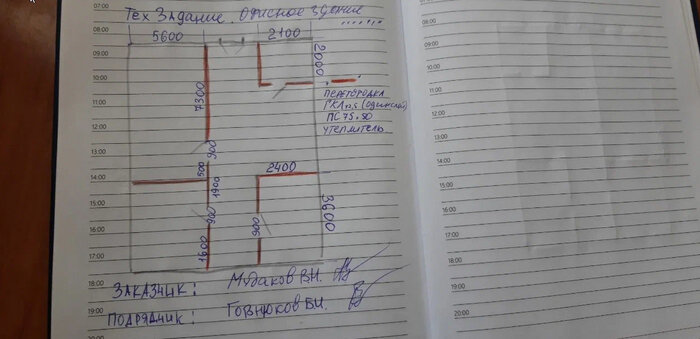 Тех Задание. Офисное Здание
5600
2100
2000
7300
ПЕРЕГОРОДКА
ГКЛ
ПС 75.50
УТЕПЛИТЕЛЬ
900
500
1900
2400
900
1600
900
3600
ЗАКАЗЧИК: Мудаков В.Н.
ПОДРЯДЧИК: Говнюков В.И.
07:00
08:00
09:00
10:00
11:00
12:00
13:00
14:00
15:00
16:00
17:00
18:00
19:00
20:00
07:00
08:00
09:00
10:00
11:00
12:00
13:00
14:00
15:00
16:00
17:00
18:00
19:00
20:00